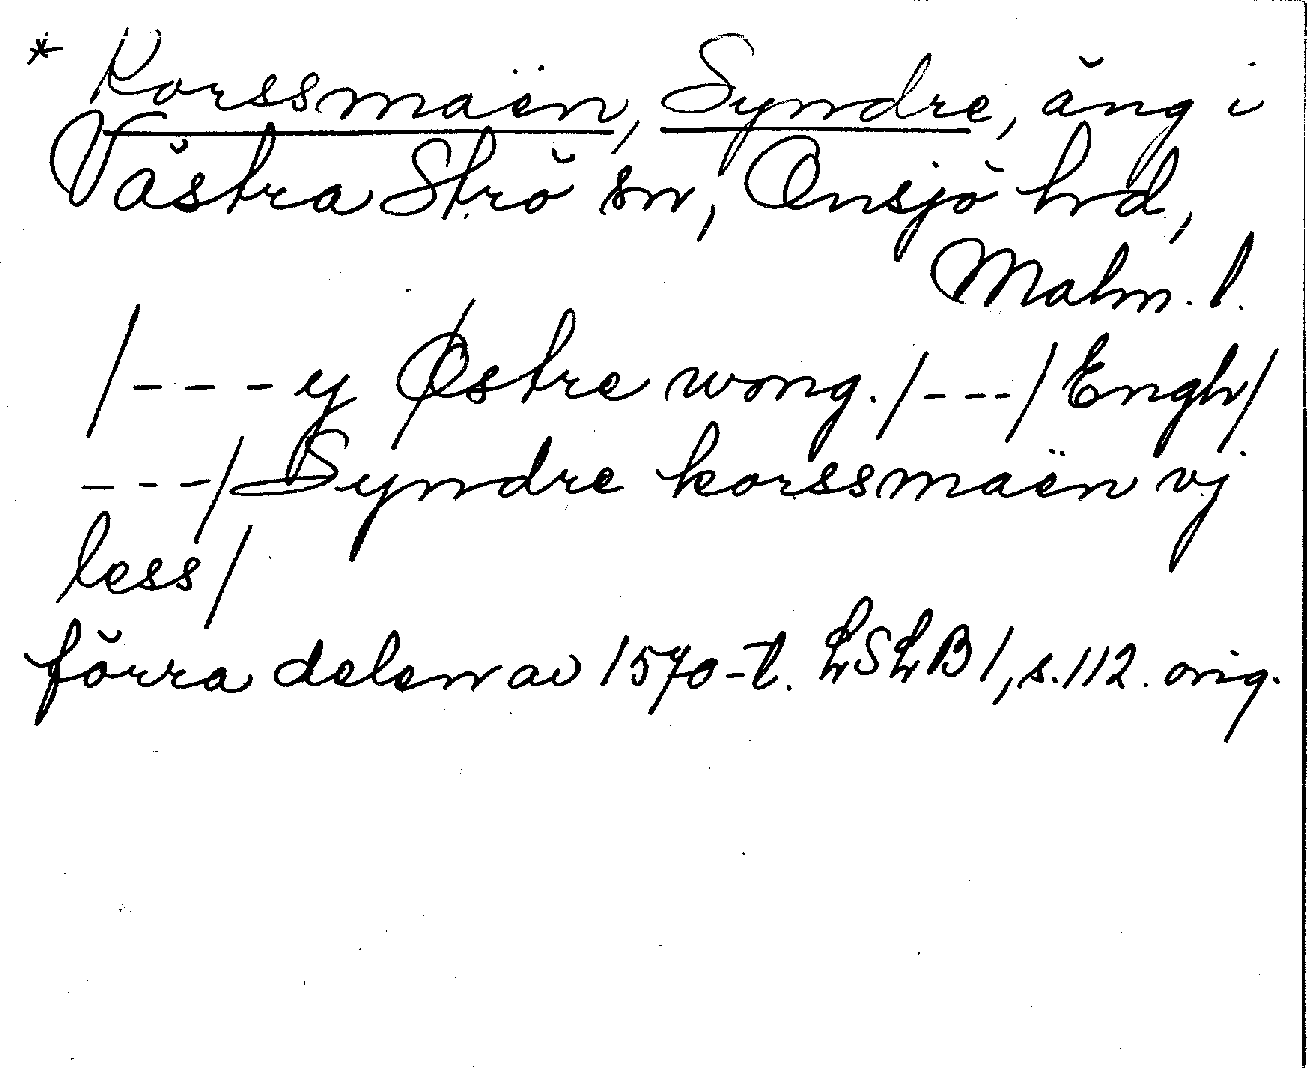 * Korssmaën, Syndre, äng i
Västra Strö sn, Onsjö hd,
Malm. l.
/---y Østre wong./---/Engh/
---/Syndre korssmaën vj
less/
förra delen av 1570-t. LSLB1, s.112. orig.